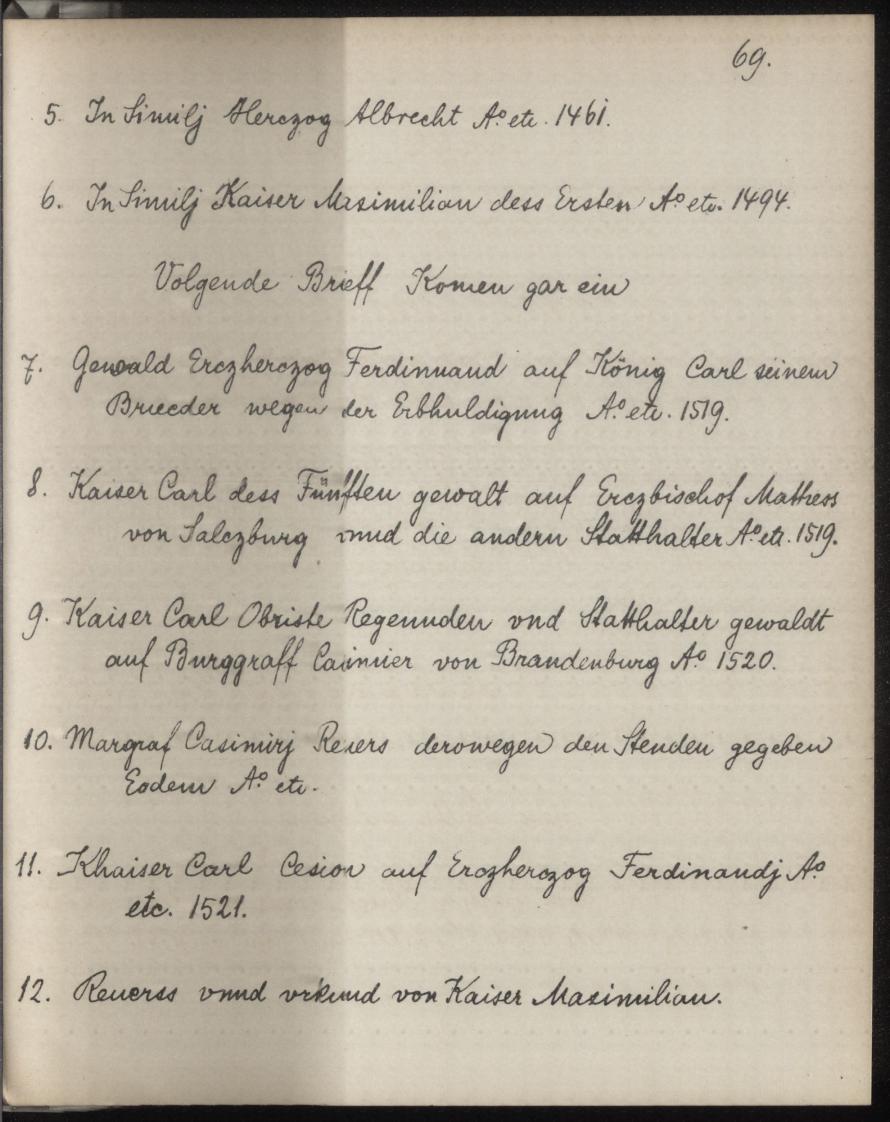 69.
5. In Similj Herczog Albrecht Aº etc. 1461.
6. In Similj Kaiser Maximilian dess Ersten Aº etc. 1494.
Volgende Brieff Komen gar ein
7. Gewald Erczherczog Ferdinnand auf König Carl seinem
Brueder wegen der Erbhuldigung Aº etc. 1519.
8. Kaiser Carl dess Fünfften gewalt auf Erczbischof Matheos
von Salczburg vnnd die andern Statthalter Aº etc. 1519.
9. Kaiser Carl Obriste Regennden vnd Statthalter gewaldt
auf Burggraff Casimier von Brandenburg Aº 1520.
10. Margraf Casimirj Reuers derowegen den Stenden gegeben
Eodem Aº etc.
11. Khaiser Carl Cesion auf Erczherczog Ferdinandj Aº
etc. 1521.
12. Reuerss vnnd vrkund von Kaiser Maximilian.